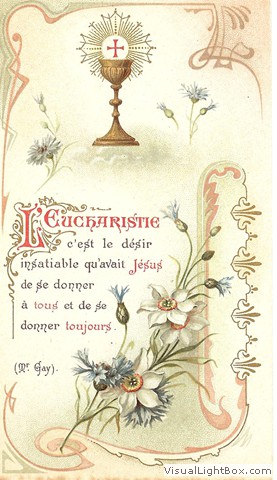 L'EUCHARISTIE
c'est le désir
insatiable qu'avait Jésus
de se donner
à tous et de se
donner toujours.
(Mr. Gay).
VisualLightBox.com